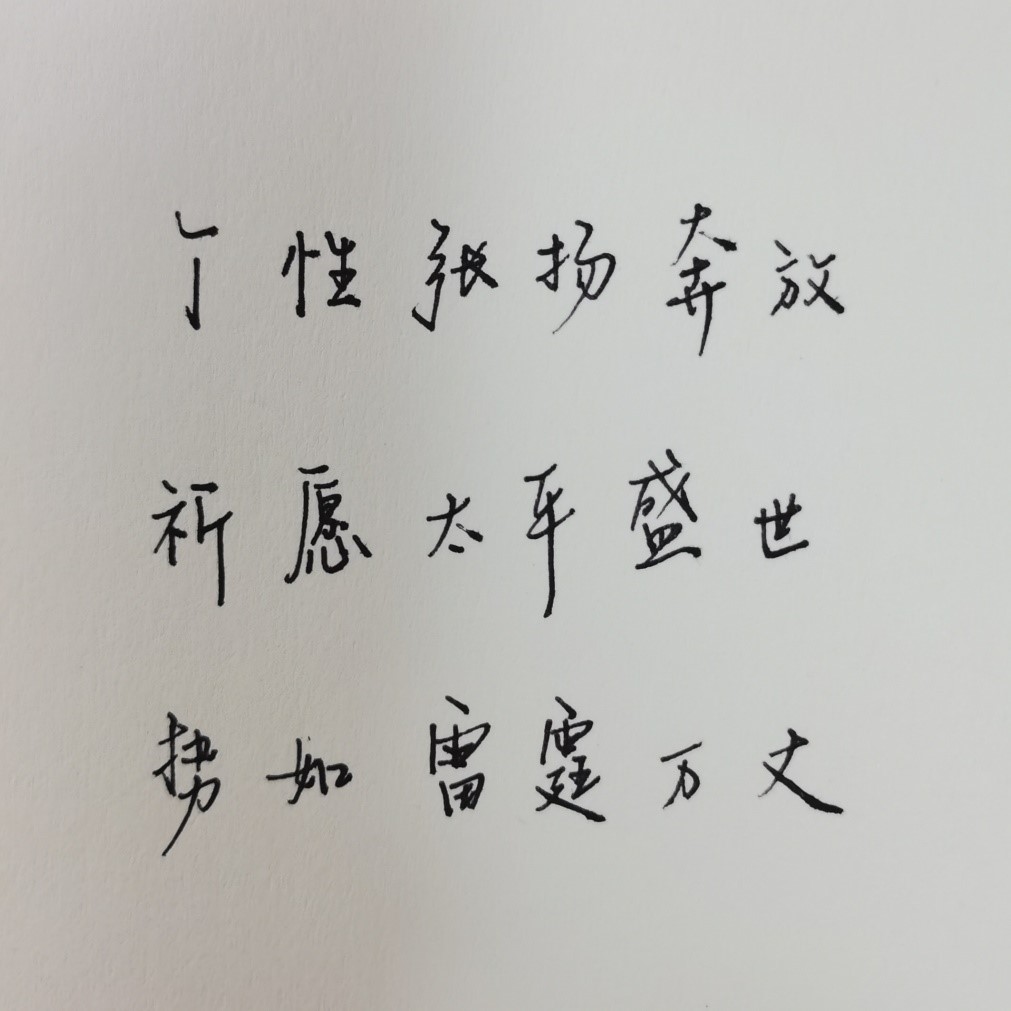 个性张扬奔放
祈愿太平盛世
势如雷霆万丈